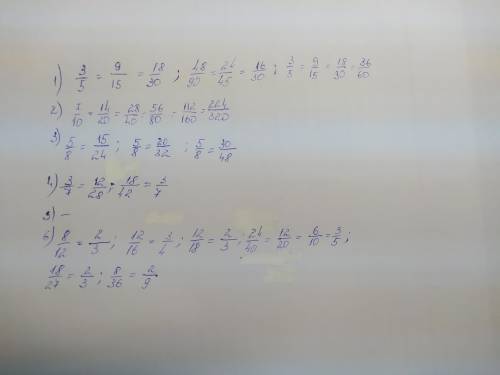 1) 3/5 = 9/15 = 18/30 ; 48/90 = 24/45 = 16/30 ; 3/5 = 9/15 = 18/30 = 36/60
2) 7/10 = 14/20 = 28/40 = 56/80 = 112/160 = 224/320
3) 5/8 = 15/24 ; 5/8 = 20/32 ; 5/8 = 30/48
4) 3/7 = 12/28 ; 18/42 = 3/7
5) —
6) 8/12 = 2/3 ; 12/16 = 3/4 ; 12/18 = 2/3 ; 24/40 = 12/20 = 6/10 = 3/5 ;
18/27 = 2/3 ; 8/36 = 2/9.